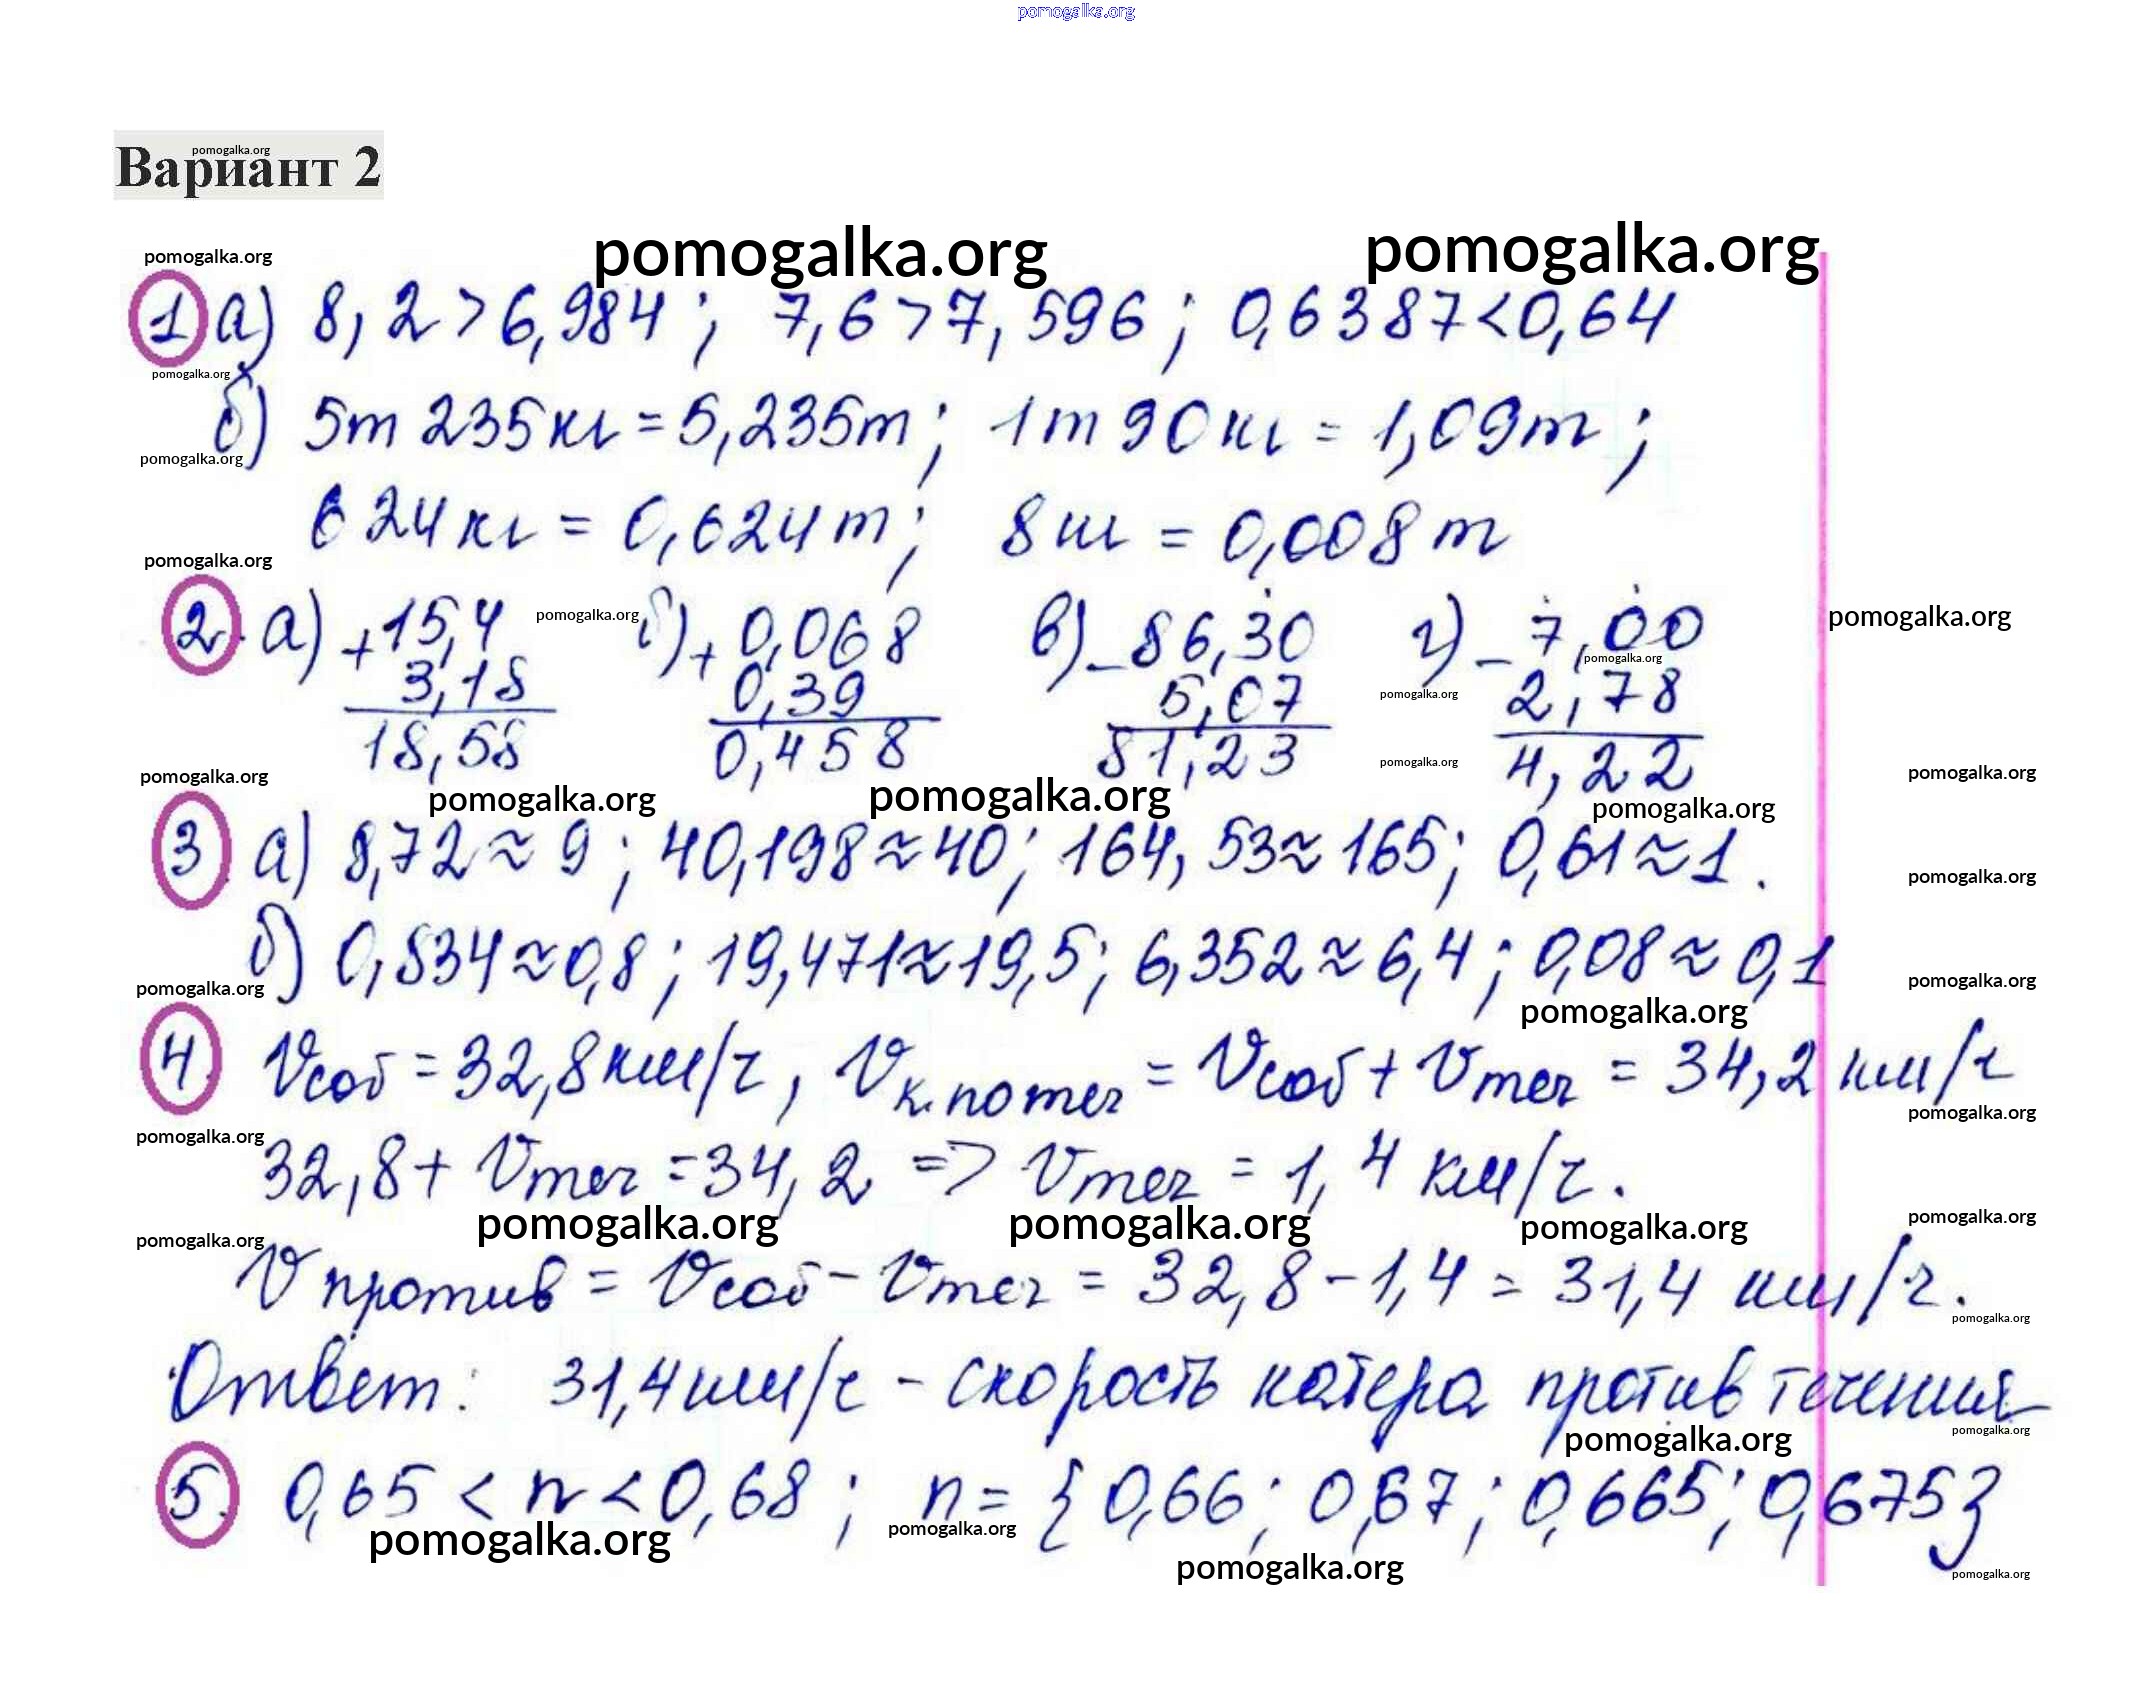 pomogalka.org
Вариант 2
pomogalka.org
pomogalka.org pomogalka.org pomogalka.org
1 а) 8,2 > 6,984 ; 7,6 > 7,596 ; 0,6387 < 0,64
pomogalka.org
б) 5т 235кг = 5,235т ; 1т 90кг = 1,09т ;
pomogalka.org
624кг = 0,624т ; 8кг = 0,008т
pomogalka.org
2. а) + 15,4 б) + 0,068 в) – 86,30 г) – 7,00
pomogalka.org pomogalka.org
3,18 0,39 5,07 2,78
pomogalka.org pomogalka.org
18,58 0,458 81,23 4,22
pomogalka.org pomogalka.org pomogalka.org
pomogalka.org pomogalka.org pomogalka.org
3 а) 8,72 ≈ 9 ; 40,198 ≈ 40 ; 164,53 ≈ 165 ; 0,61 ≈ 1 .
pomogalka.org
б) 0,834 ≈ 0,8 ; 19,471 ≈ 19,5 ; 6,352 ≈ 6,4 ; 0,08 ≈ 0,1
pomogalka.org pomogalka.org
pomogalka.org
4. Vсоб = 32,8км/ч , Vк.по теч = Vсоб + Vтеч = 34,2 км/ч
pomogalka.org pomogalka.org
32,8 + Vтеч = 34,2 => Vтеч = 1,4 км/ч .
pomogalka.org pomogalka.org pomogalka.org pomogalka.org
pomogalka.org
Vпротив = Vсоб – Vтеч = 32,8 – 1,4 = 31,4 км/ч .
pomogalka.org
Ответ : 31,4км/ч – скорость катера против течения
pomogalka.org pomogalka.org
5. 0,65 < n < 0,68 ; n = { 0,66 ; 0,67 ; 0,665 ; 0,675}
pomogalka.org pomogalka.org
pomogalka.org pomogalka.org